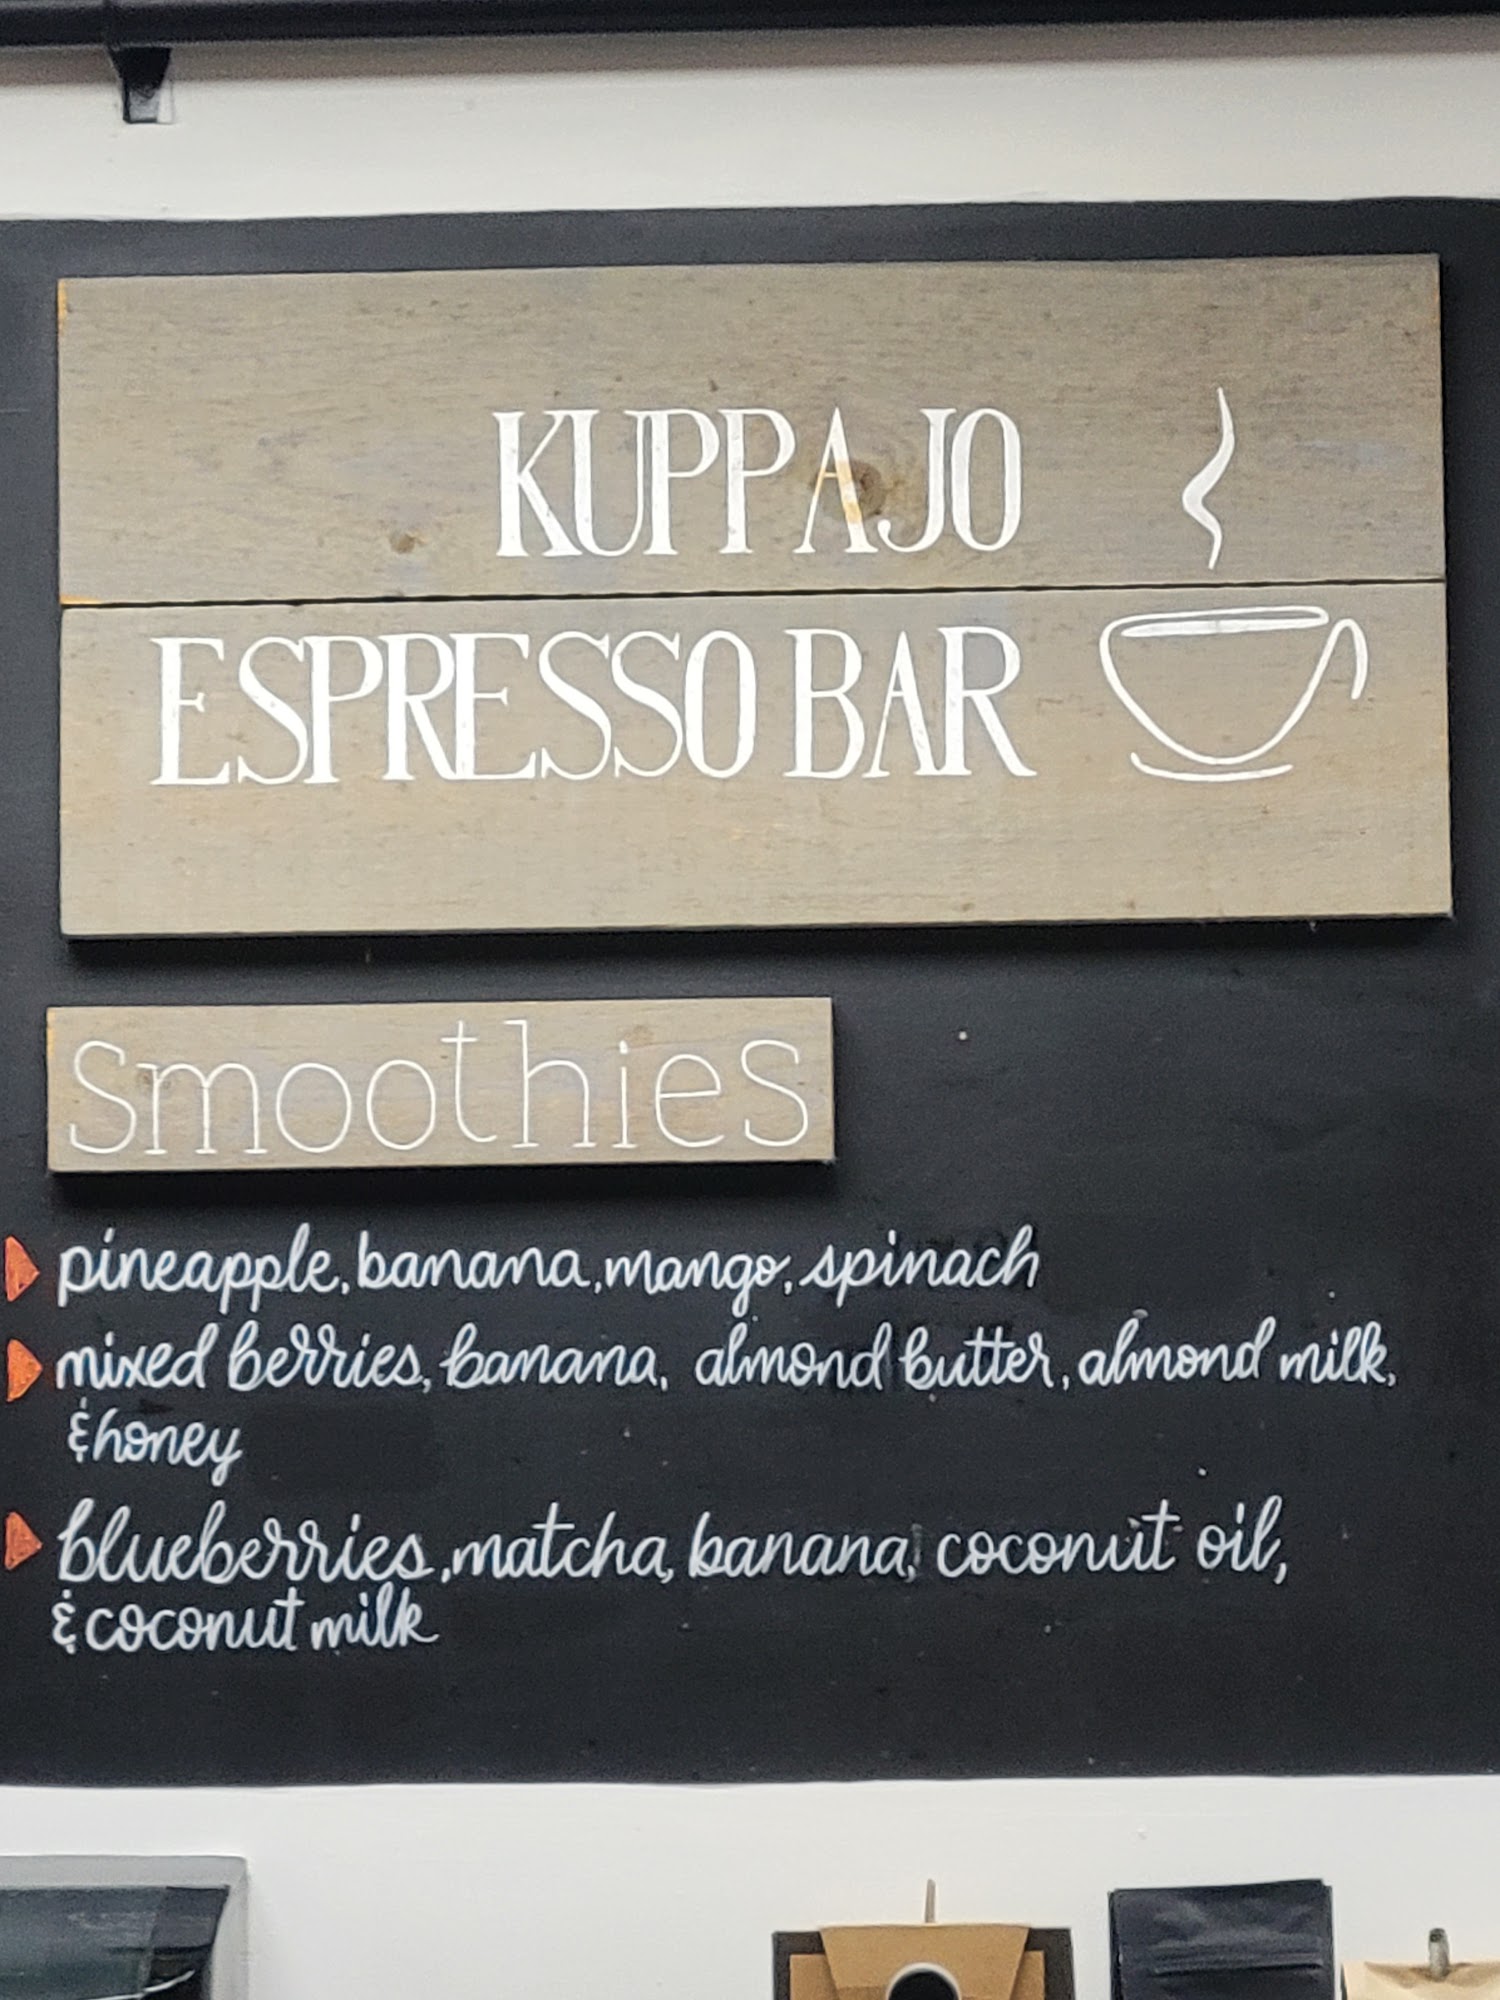 KUPPAJO
ESPRESSO BAR
smoothies
pineapple, banana, mango, spinach
mixed berries, banana, almond butter, almond milk,
& honey
blueberries, matcha, banana, coconut oil,
& coconut milk